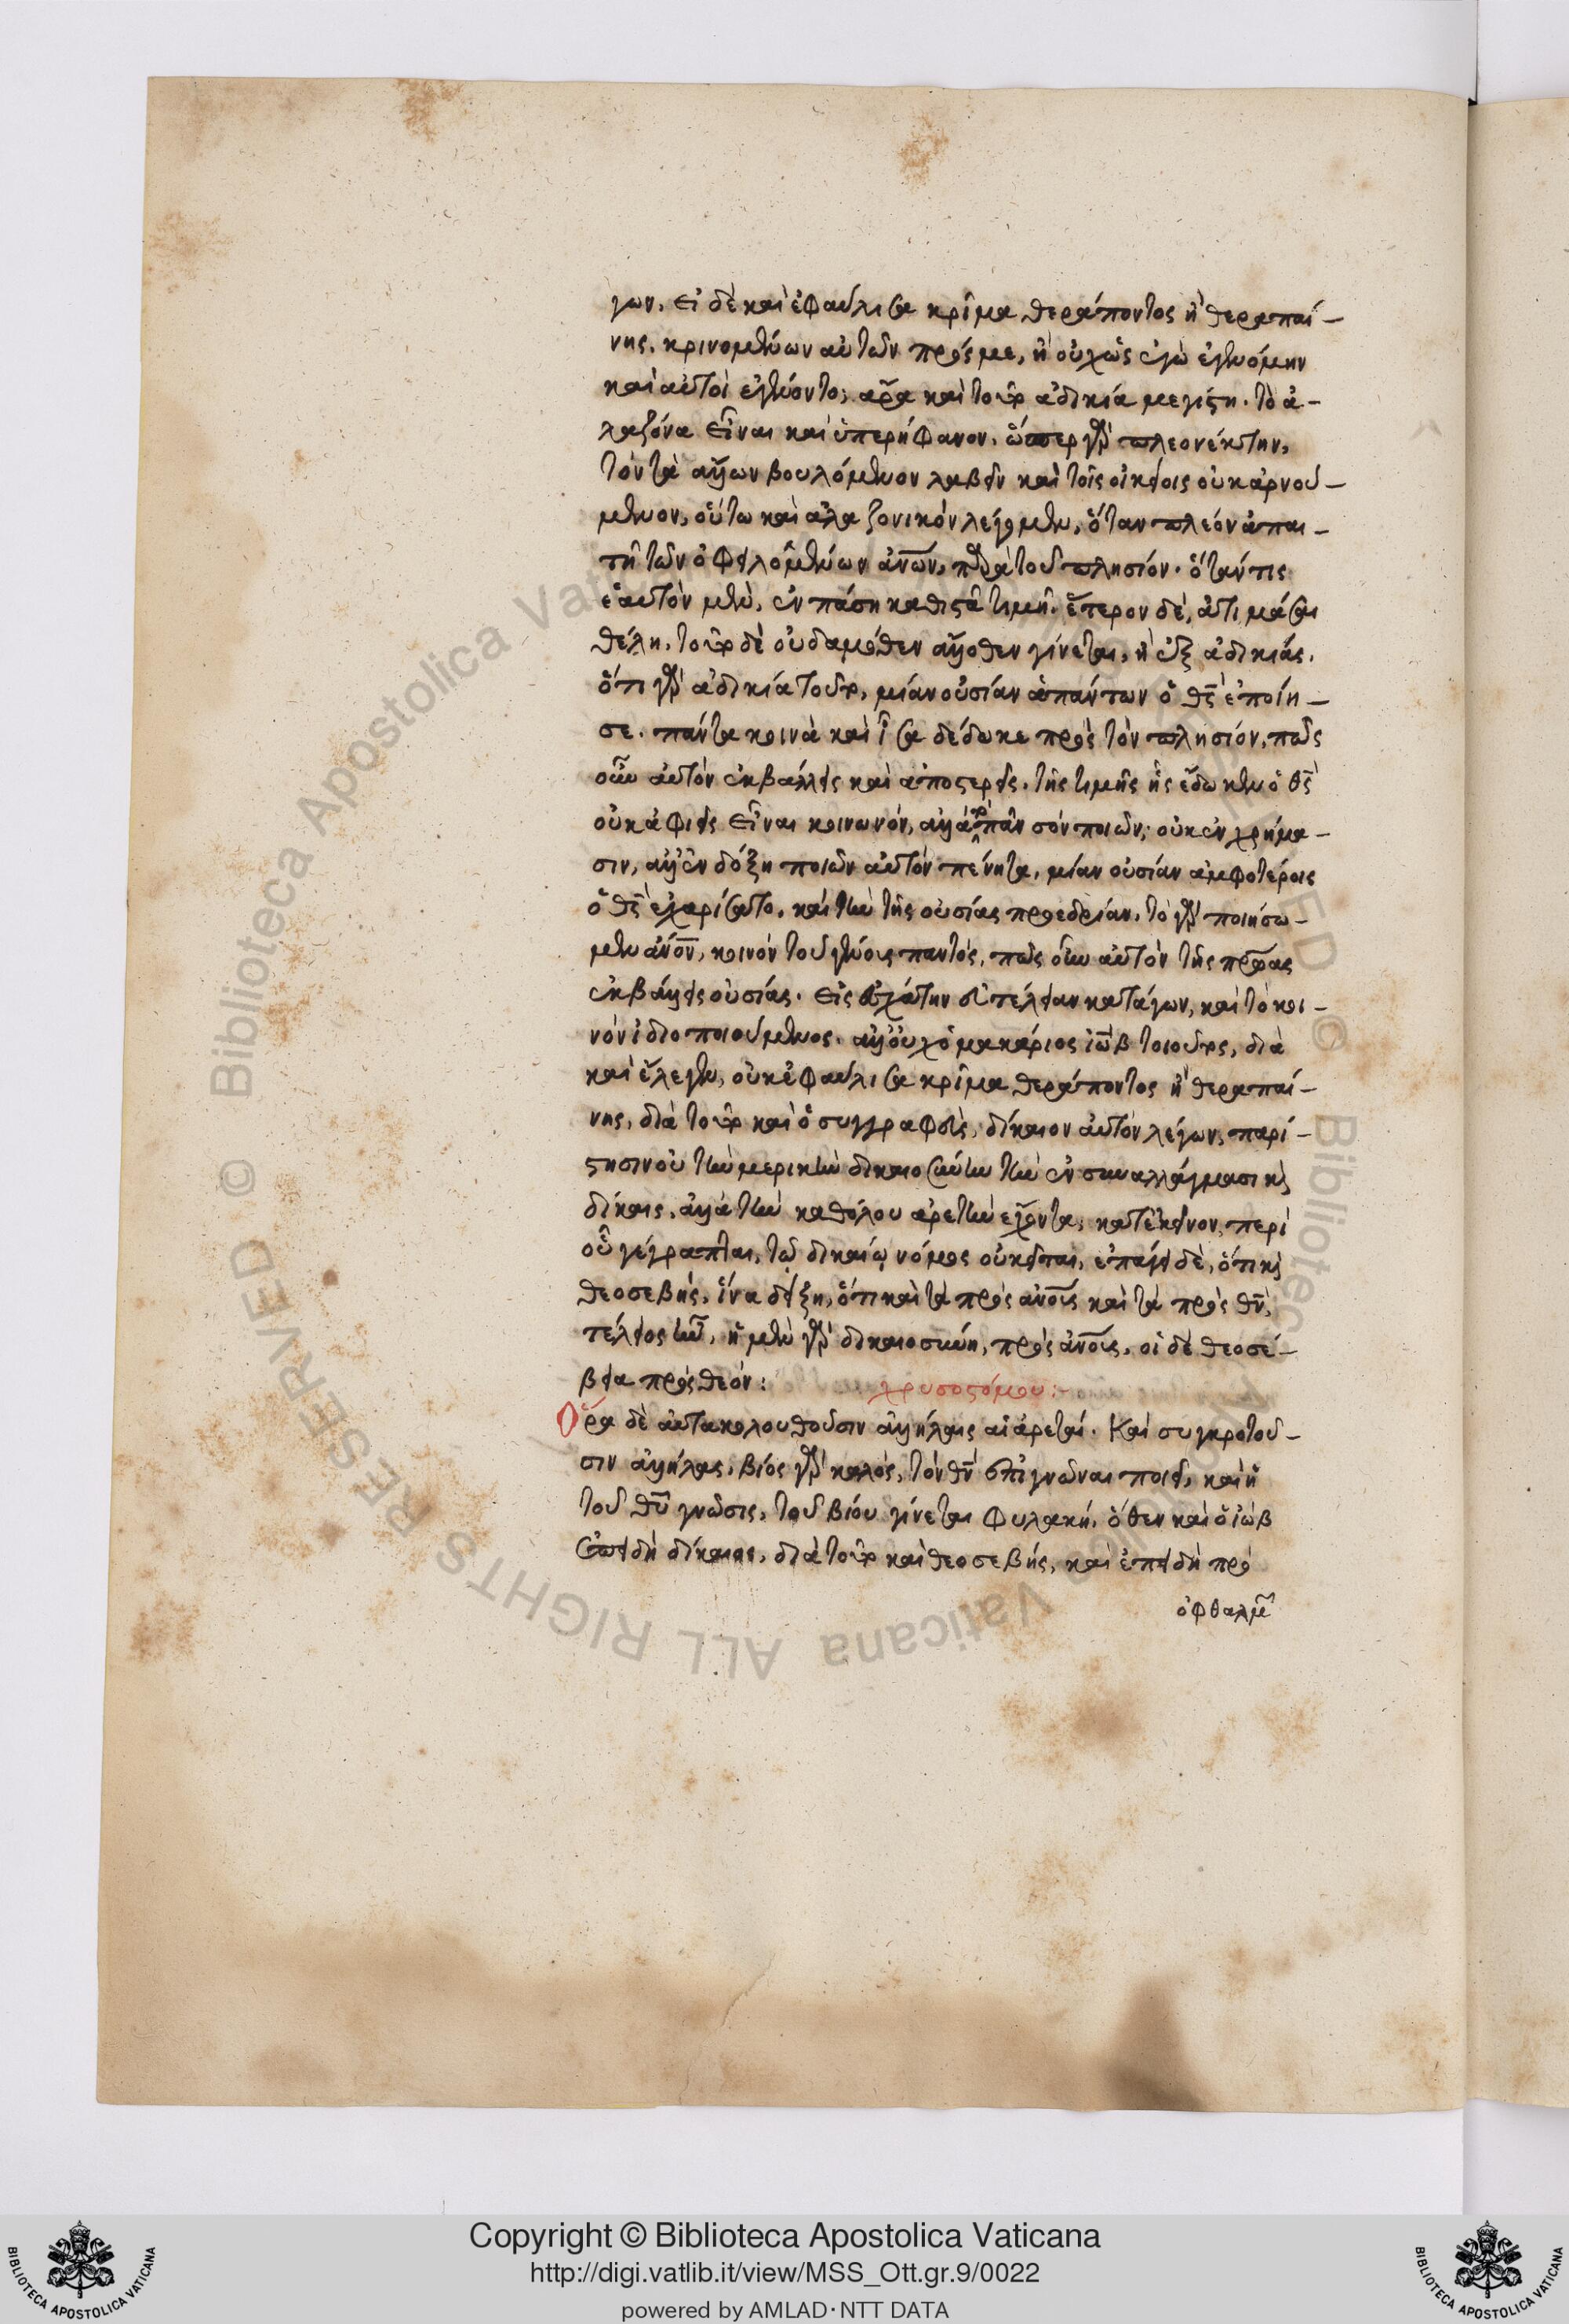 γων. εἰ δὲ καὶ ἐφαύλισα κρῖμα θεράποντος ἢ θεραπαί-
νης, κρινομένων αὐτῶν πρός με, ἢ οὐχ ὡς ἐγὼ ἐγενόμην
καὶ αὐτοὶ ἐγένοντο; ἆρα καὶ τοῦτο ἀδικία μεγίστη. τὸ ἀ-
λαζόνα εἶναι καὶ ὑπερήφανον. ὥσπερ γὰρ πλεονέκτην,
τὸν τὰ ἄλλων βουλόμενον λαβεῖν καὶ τοῖς οἰκείοις οὐκ ἀρκού-
μενον, οὕτω καὶ ἀλαζονικὸν λέγομεν, ὅταν πλέον ἀπαι-
τῇ τῶν ὀφειλομένων ἀνων, παρὰ τοῦ πλησίον. ὅταν τις
ἑαυτὸν μὲν, ἐν πάσῃ καθιστᾷ τιμῇ. ἕτερον δὲ, ἀτιμάσαι
θέλῃ. τοῦτο δὲ οὐδαμόθεν ἄλλοθεν γίνεται, ἢ ἐξ ἀδικίας.
ὅτι γὰρ ἀδικία τοῦτο, μίαν οὐσίαν ἁπάντων ὁ θς ἐποίη-
σε. πάντα κοινὰ καὶ ἶσα δέδωκε πρὸς τὸν πλησίον, πῶς
οὖν αὐτὸν ἐκβάλλεις καὶ ἀποστερεῖς. τῆς τιμῆς ἧς ἔδωκεν ὁ θς
οὐκ ἀφιεὶς εἶναι κοινωνόν, ἀλλὰ τὸ πᾶν σὸν ποιῶν; οὐκ ἐν χρήμα-
σιν, ἀλλ' ἐν δόξῃ ποιῶν αὐτὸν πένητα, μίαν οὐσίαν ἀμφοτέροις
ὁ θς ἐχαρίσατο. καὶ τὴν τῆς οὐσίας προεδρίαν. τὸ γὰρ ποιήσω-
μεν ἄνον, κοινὸν τοῦ γένους παντός, πῶς οὖν αὐτὸν τῆς πρώας
ἐκβάλλεις οὐσίας. εἰς ἐσχάτην εὐτέλειαν κατάγων, καὶ τὸ κοι-
νὸν ἰδιοποιούμενος. ἀλλ' οὐχ ὁ μακάριος ἰὼβ τοιοῦτος, διὰ
καὶ ἔλεγεν, οὐκ ἐφαύλισα κρῖμα θεράποντος ἢ θεραπαί-
νης, διὰ τοῦτο καὶ ὁ συγγραφεὺς, δίκαιον αὐτὸν λέγων, παρί-
στησιν οὐ τὴν μερικὴν δικαιοσύνην τὴν ἐν συναλλάγμασι κὶ
δίκαις, ἀλλὰ τὴν καθόλου ἀρετὴν ἔχοντα, κατ' ἐκεῖνον, περὶ
οὗ γέγραπται, τῷ δικαίῳ νόμος οὐ κεῖται, ἐπάγει δὲ, ὅτι κὶ
θεοσεβής, ἵνα δείξῃ, ὅτι καὶ τὰ πρὸς ἀνους καὶ τὰ πρὸς θν,
τέλειος ἦν, ἡ μὲν γὰρ δικαιοσύνη, πρὸς ἀνους, οἱ δὲ θεοσέ-
βεια πρὸς θεόν:
χρυσοστόμου:
Ὅρα δὲ ἀντακολουθοῦσιν ἀλλήλαις αἱ ἀρεταί. Καὶ συγκροτοῦ-
σιν ἀλλήλας, βίος γὰρ καλὸς, τὸν θν ἐπιγνῶναι ποιεῖ, καὶ ἡ
τοῦ θυ γνῶσις, τοῦ βίου γίνεται φυλακή. ὅθεν καὶ ὁ ἰὼβ
ἐπειδὴ δίκαιος, διὰ τοῦτο καὶ θεοσεβής, καὶ ἐπειδὴ πρὸ
ὀφθαλμῶ
Copyright © Biblioteca Apostolica Vaticana
http://digi.vatlib.it/view/MSS_Ott.gr.9/0022
powered by AMLAD·NTT DATA